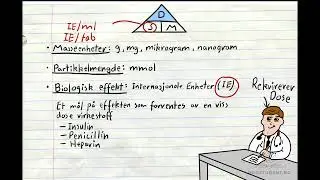 IE/ml
IE/tab
D
S M
• Masseenheter: g, mg, mikrogram, nanogram
• Partikkelmengde: mmol
• Biologisk effekt: Internasjonale Enheter (IE)
Et mål på effekten som forventes av en viss
dose virkestoff
– Insulin
– Penicillin
– Heparin
Rekvirerer
Dose